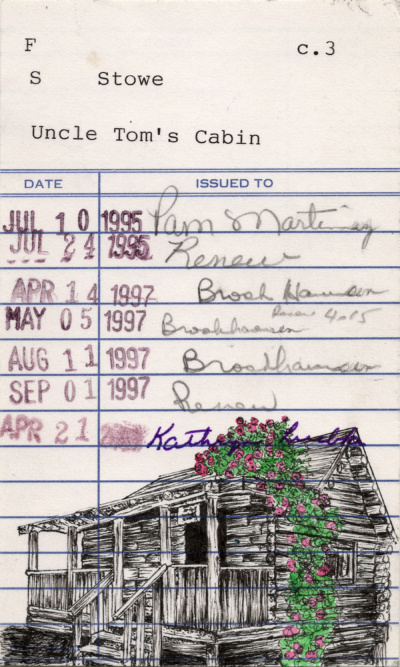 F c.3
S Stowe
Uncle Tom's Cabin
DATE ISSUED TO
JUL 10 1995 Pam Martinez
JUL 24 1995 Renew
APR 14 1997 Brook
MAY 05 1997 4-15
AUG 11 1997
SEP 01 1997 Renew
APR 21 Kathryn